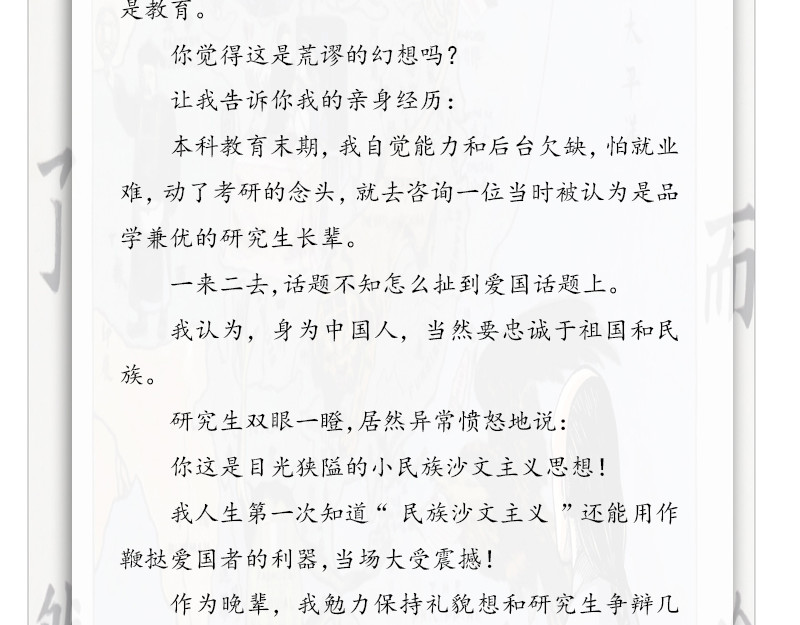 是教育。
你觉得这是荒谬的幻想吗？
让我告诉你我的亲身经历：
本科教育末期，我自觉能力和后台欠缺，怕就业
难，动了考研的念头，就去咨询一位当时被认为是品
学兼优的研究生长辈。
一来二去，话题不知怎么扯到爱国话题上。
我认为，身为中国人，当然要忠诚于祖国和民
族。
研究生双眼一瞪，居然异常愤怒地说：
你这是目光狭隘的小民族沙文主义思想！
我人生第一次知道“ 民族沙文主义 ”还能用作
鞭挞爱国者的利器，当场大受震撼！
作为晚辈，我勉力保持礼貌想和研究生争辩几